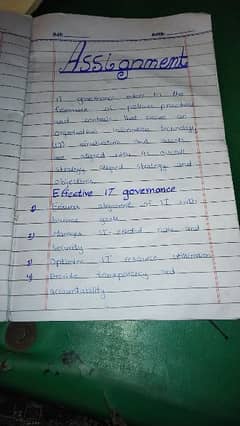 Assignment
IT governance refers to the
framework of policies practices
and controls that ensure an
organization's information technology
(IT) and
are aligned with its overall
strategy aligned strategy and
objectives.
Effective IT governance
1) Ensures alignment of IT with
business goals
2) Manages IT related risks and
security
3) Optimize IT resource utilization
4) Provide transparency and
accountability